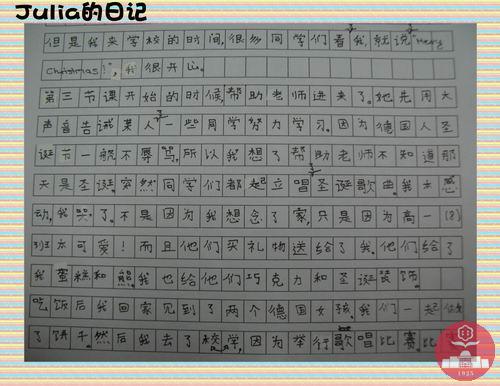 Julia的日记
但是我来学校的时间，很多同学们看我，就说“Merry
Christmas”，我很开心。
第三节课开始的时候，帮助老师进来了。她先用大
声音告诫某人一些同学努力学习。因为德国人圣
诞节一般不辱骂，所以我想了帮助老师不知道那
天是圣诞。突然同学们都起立唱圣诞歌曲。我太感
动，我哭了。不是因为我想念了家，只是因为高一（8）
班太可爱！而且他们买礼物送给了我。他们给了
我蛋糕和熊。我也给他们巧克力和圣诞装饰。
吃饭后我回家见到了两个德国女孩。我们一起
了饼干。然后我去了校学，因为举行歌唱比赛。比
1925